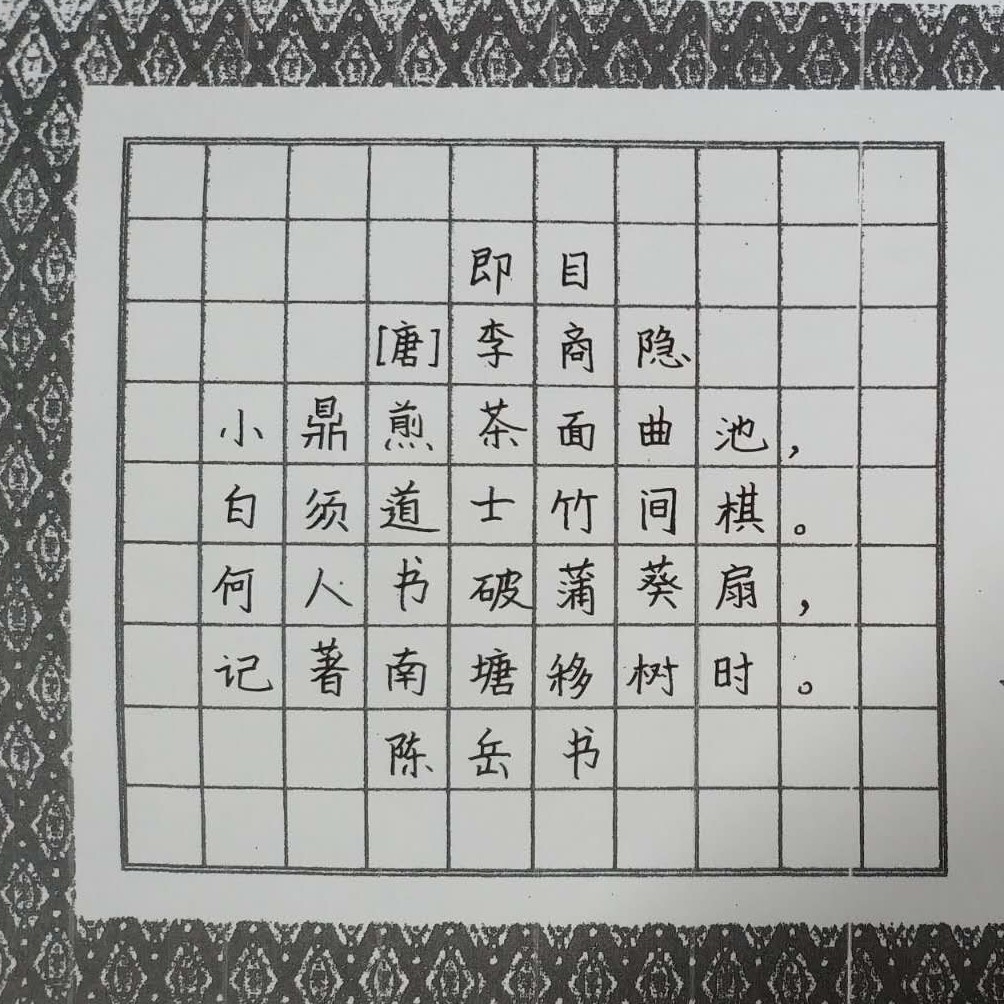 即目
[唐]李商隐
小鼎煎茶面曲池，
白须道士竹间棋。
何人书破蒲葵扇，
记著南塘移树时。
陈岳书